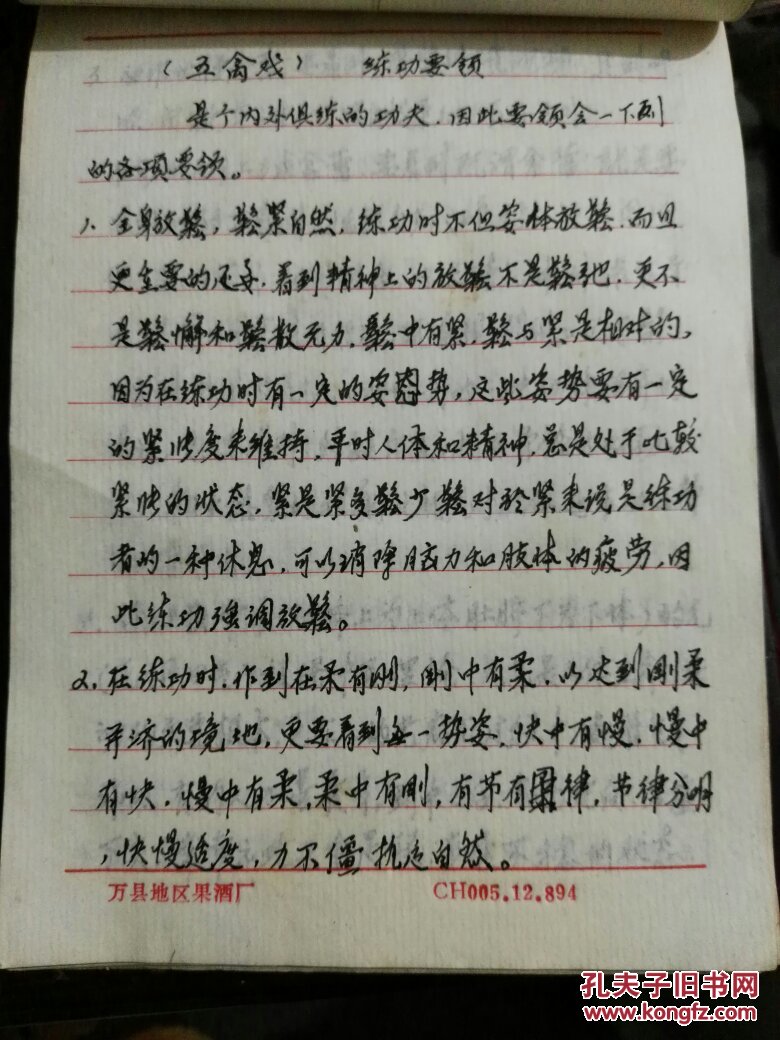 （五禽戏） 练功要领
是个内外俱练的功夫，因此要领会一下列
的各项要领。
1. 全身放鬆，鬆紧自然，练功时不但姿体放鬆，而且
更重要的还每，看到精神上的放鬆不是鬆弛，更不
是鬆懈和鬆散无力，鬆中有紧，鬆与紧是相对的，
因为在练功时有一定的姿势，这些姿势要有一定
的紧张度来维持，平时人体和精神，总是处于比较
紧张的状态，紧是紧多鬆少鬆对於紧来说是练功
者的一种休息，可以消除脑力和肢体的疲劳，因
此练功强调放鬆。
2. 在练功时，作到在柔有刚，刚中有柔，以达到刚柔
平济的境地，更要看到每一势姿，快中有慢，慢中
有快，慢中有柔，柔中有刚，有节有律，节律分明
，快慢适度，力不僵 自然。
万县地区果酒厂 CH005.12.894
孔夫子旧书网
www.kongfz.com